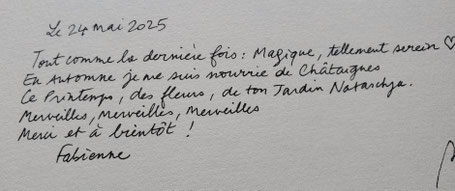 Le 24 mai 2025
Tout comme la dernière fois : Magique, tellement serein ♡
En Automne je me suis nourrie de Châtaignes
Ce Printemps, des fleurs, de ton Jardin Nataschja.
Merveilles, Merveilles, Merveilles
Merci et à bientôt !
Fabienne